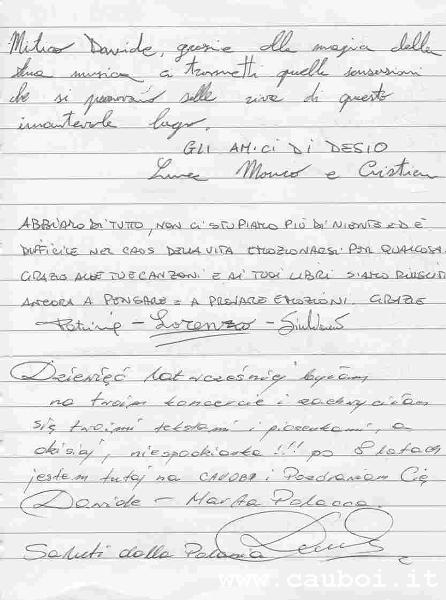 Mitico Davide, grazie alla magia della
tua musica ci trasmetti quelle sensazioni
che si provano sulle rive di questo
incantevole lago.
GLI AMICI DI DESIO
Luca Marco e Cristian
ABBIAMO DI TUTTO, NON CI STUPIAMO PIÙ DI NIENTE ED È
DIFFICILE NEL CAOS DELLA VITA EMOZIONARSI PER QUALCOSA.
GRAZIE ALLE TUE CANZONI E AI TUOI LIBRI SIAMO RIUSCITI
ANCORA A PENSARE E A PROVARE EMOZIONI. GRAZIE
Patrizia - Lorenzo - Giuliano
Dziewięć lat wcześniej byłam
na twoim koncercie i zachwyciłam
się twoimi tekstami i piosenkami, a
dzisiaj, niespodzianka!!! po 8 latach
jestem tutaj na CAUBOI i Pozdrawiam Cię
Davide - Marta Polacca.
Saluti dalla Polonia
www.cauboi.it